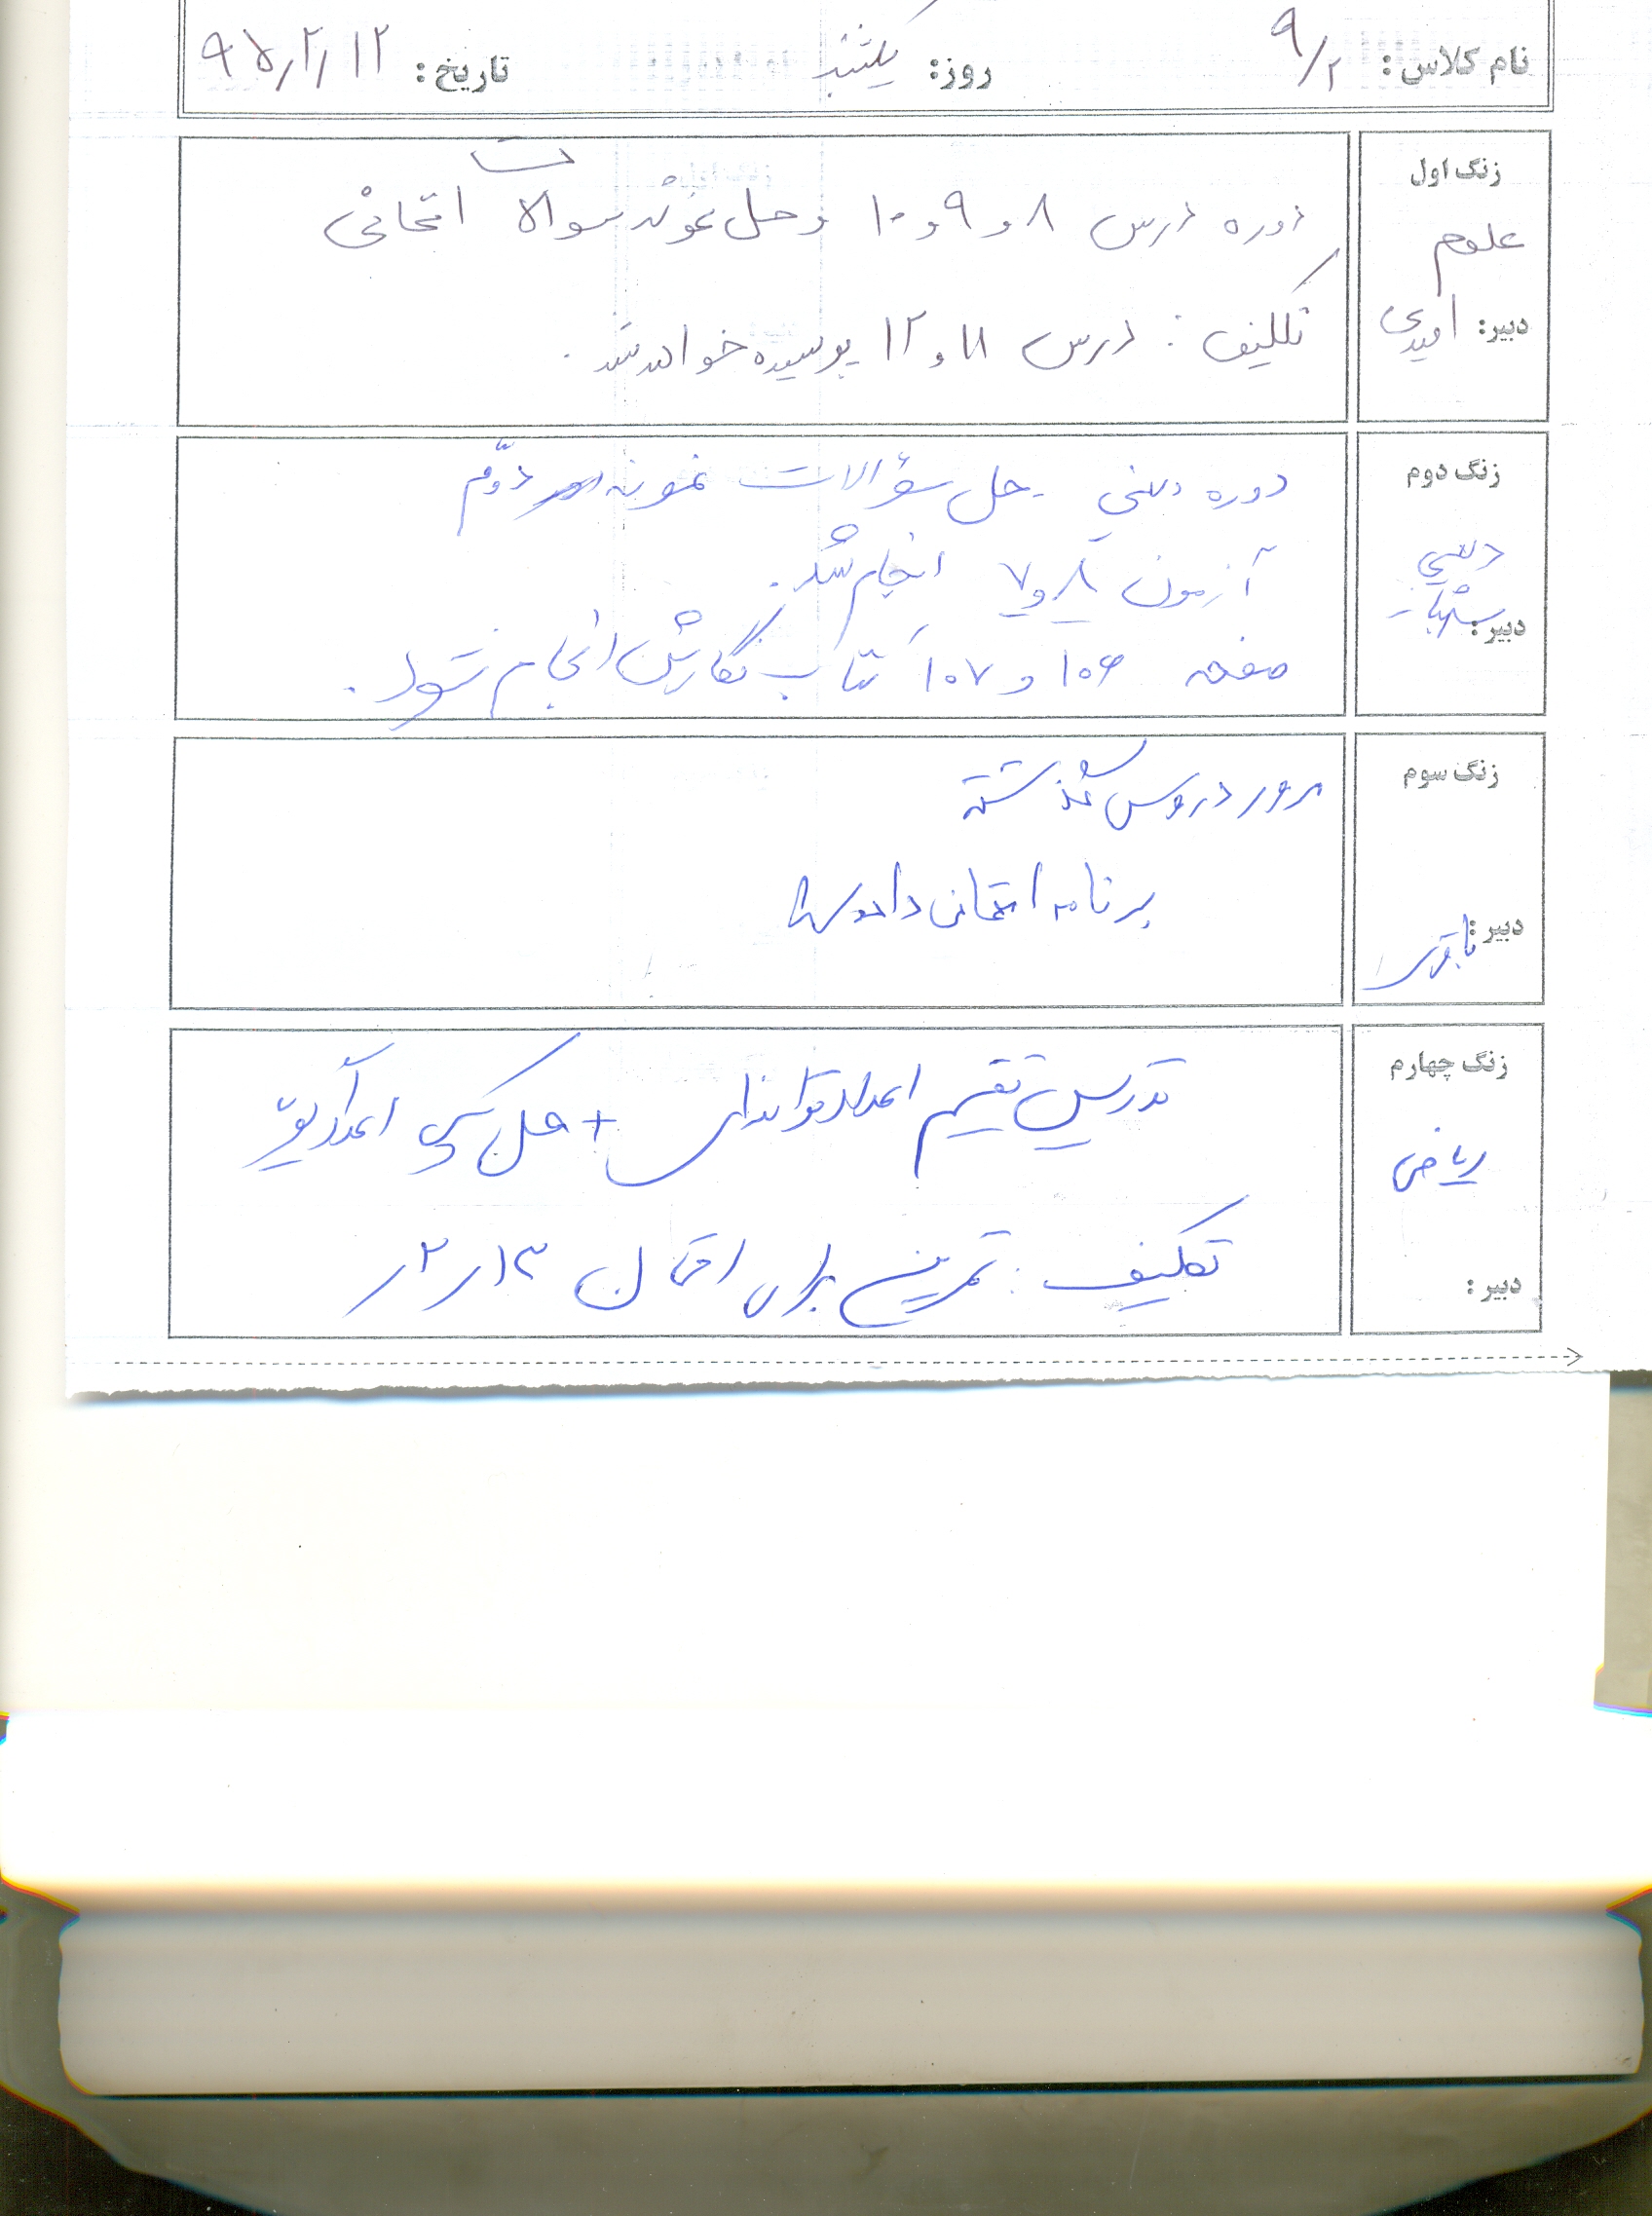 نام کلاس : ۹/۲ روز: یکشنبه تاریخ : ۹۵/۲/۱۲
زنگ اول
علوم
دبیر: امیدی
دوره درس ۸ و ۹ و ۱۰ و حل نمونه سوالات امتحانی
تکلیف : درس ۱۱ و ۱۲ پرسیده خواهد شد .
زنگ دوم
دینی
دبیر :
دوره دینی - حل سؤالات نمونه دوّم
آزمون ۸ و ۷ انجام شد .
صفحه ۱۰۶ و ۱۰۷ کتاب نگارش انجام شود .
زنگ سوم
دبیر :
مرور دروس گذشته
برنامه امتحانی داده شد
زنگ چهارم
ریاضی
دبیر :
تدریس تقسیم + حل
تکلیف : تمرین برای امتحان ۱۳ / ۲ /